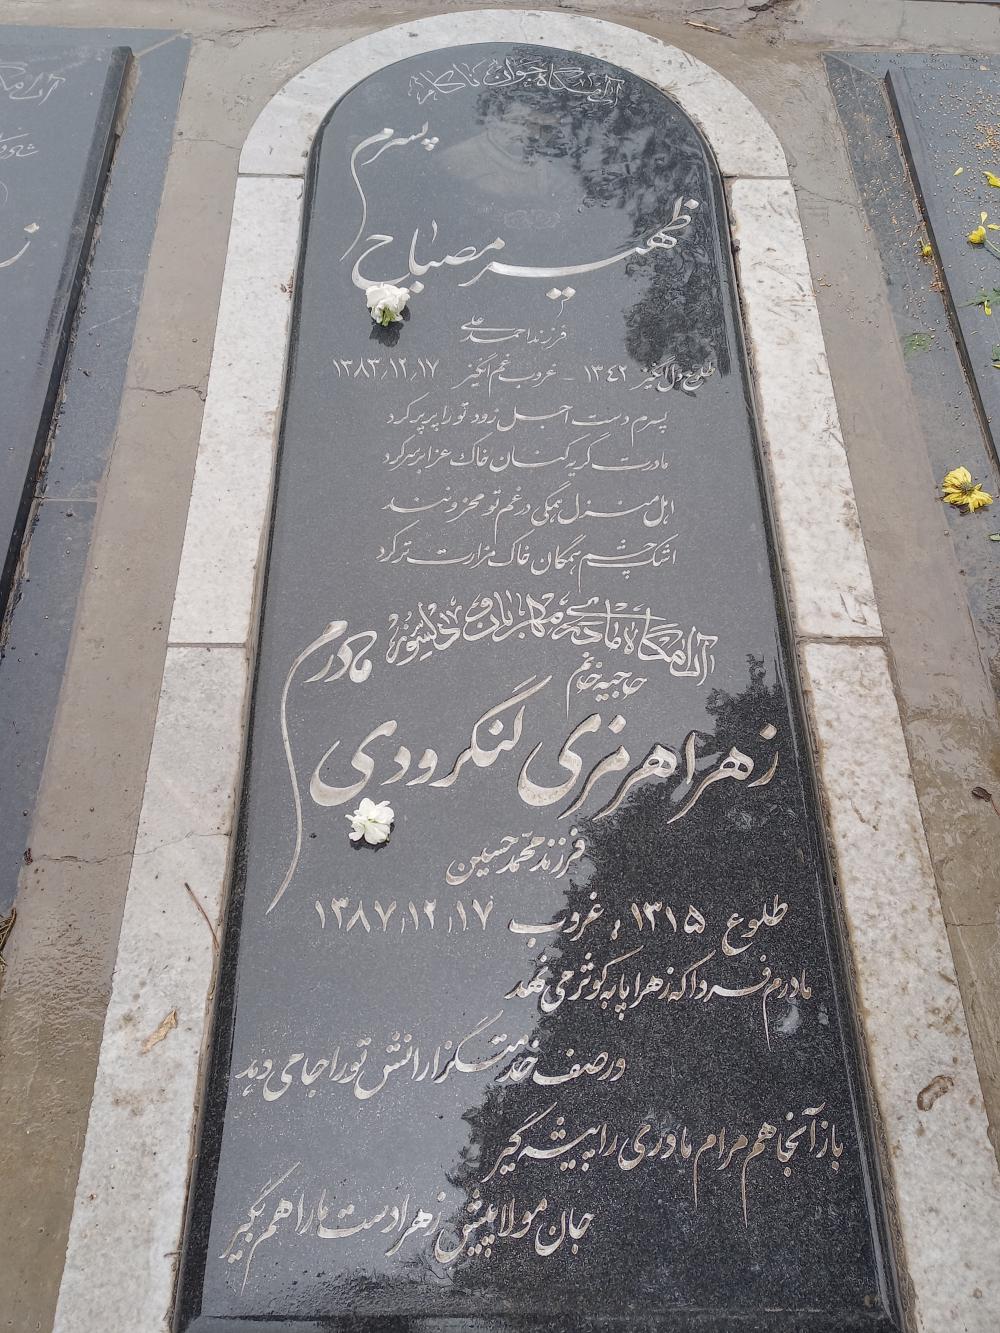 آرامگاه جوان ناکام
پسرم
ظهیر مصباح
فرزند احمد علی
طلوع دل انگیز ۱۳۴۲ - غروب غم انگیز ۱۳۸۳,۱۲,۱۷
پسرم دست اجل زود تو را پرپر کرد
مادرت گریه کنان خاک عزا بر سر کرد
اهل منزل همگی در غم تو محزونند
اشک چشم همگان خاک مزارت تر کرد
آرامگاه مادری مهربان و دلسوز
مادرم
حاجیه خانم
زهرا هرمزی لنگرودی
فرزند محمد حسین
طلوع ۱۳۱۵ , غروب ۱۳۸۷,۱۲,۱۷
مادرم فردا که زهرا پا به کوثر می نهد
ور صف خدمتگزارانش تو را جا می دهد
باز آنجا هم مرام مادری را پیشه گیر
جان مولا پیش زهرا دست ما را هم بگیر